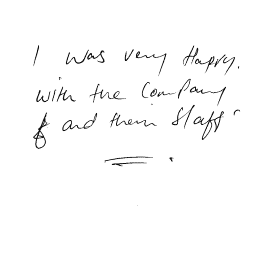 I was very Happy.
with the Company
& and them Staff